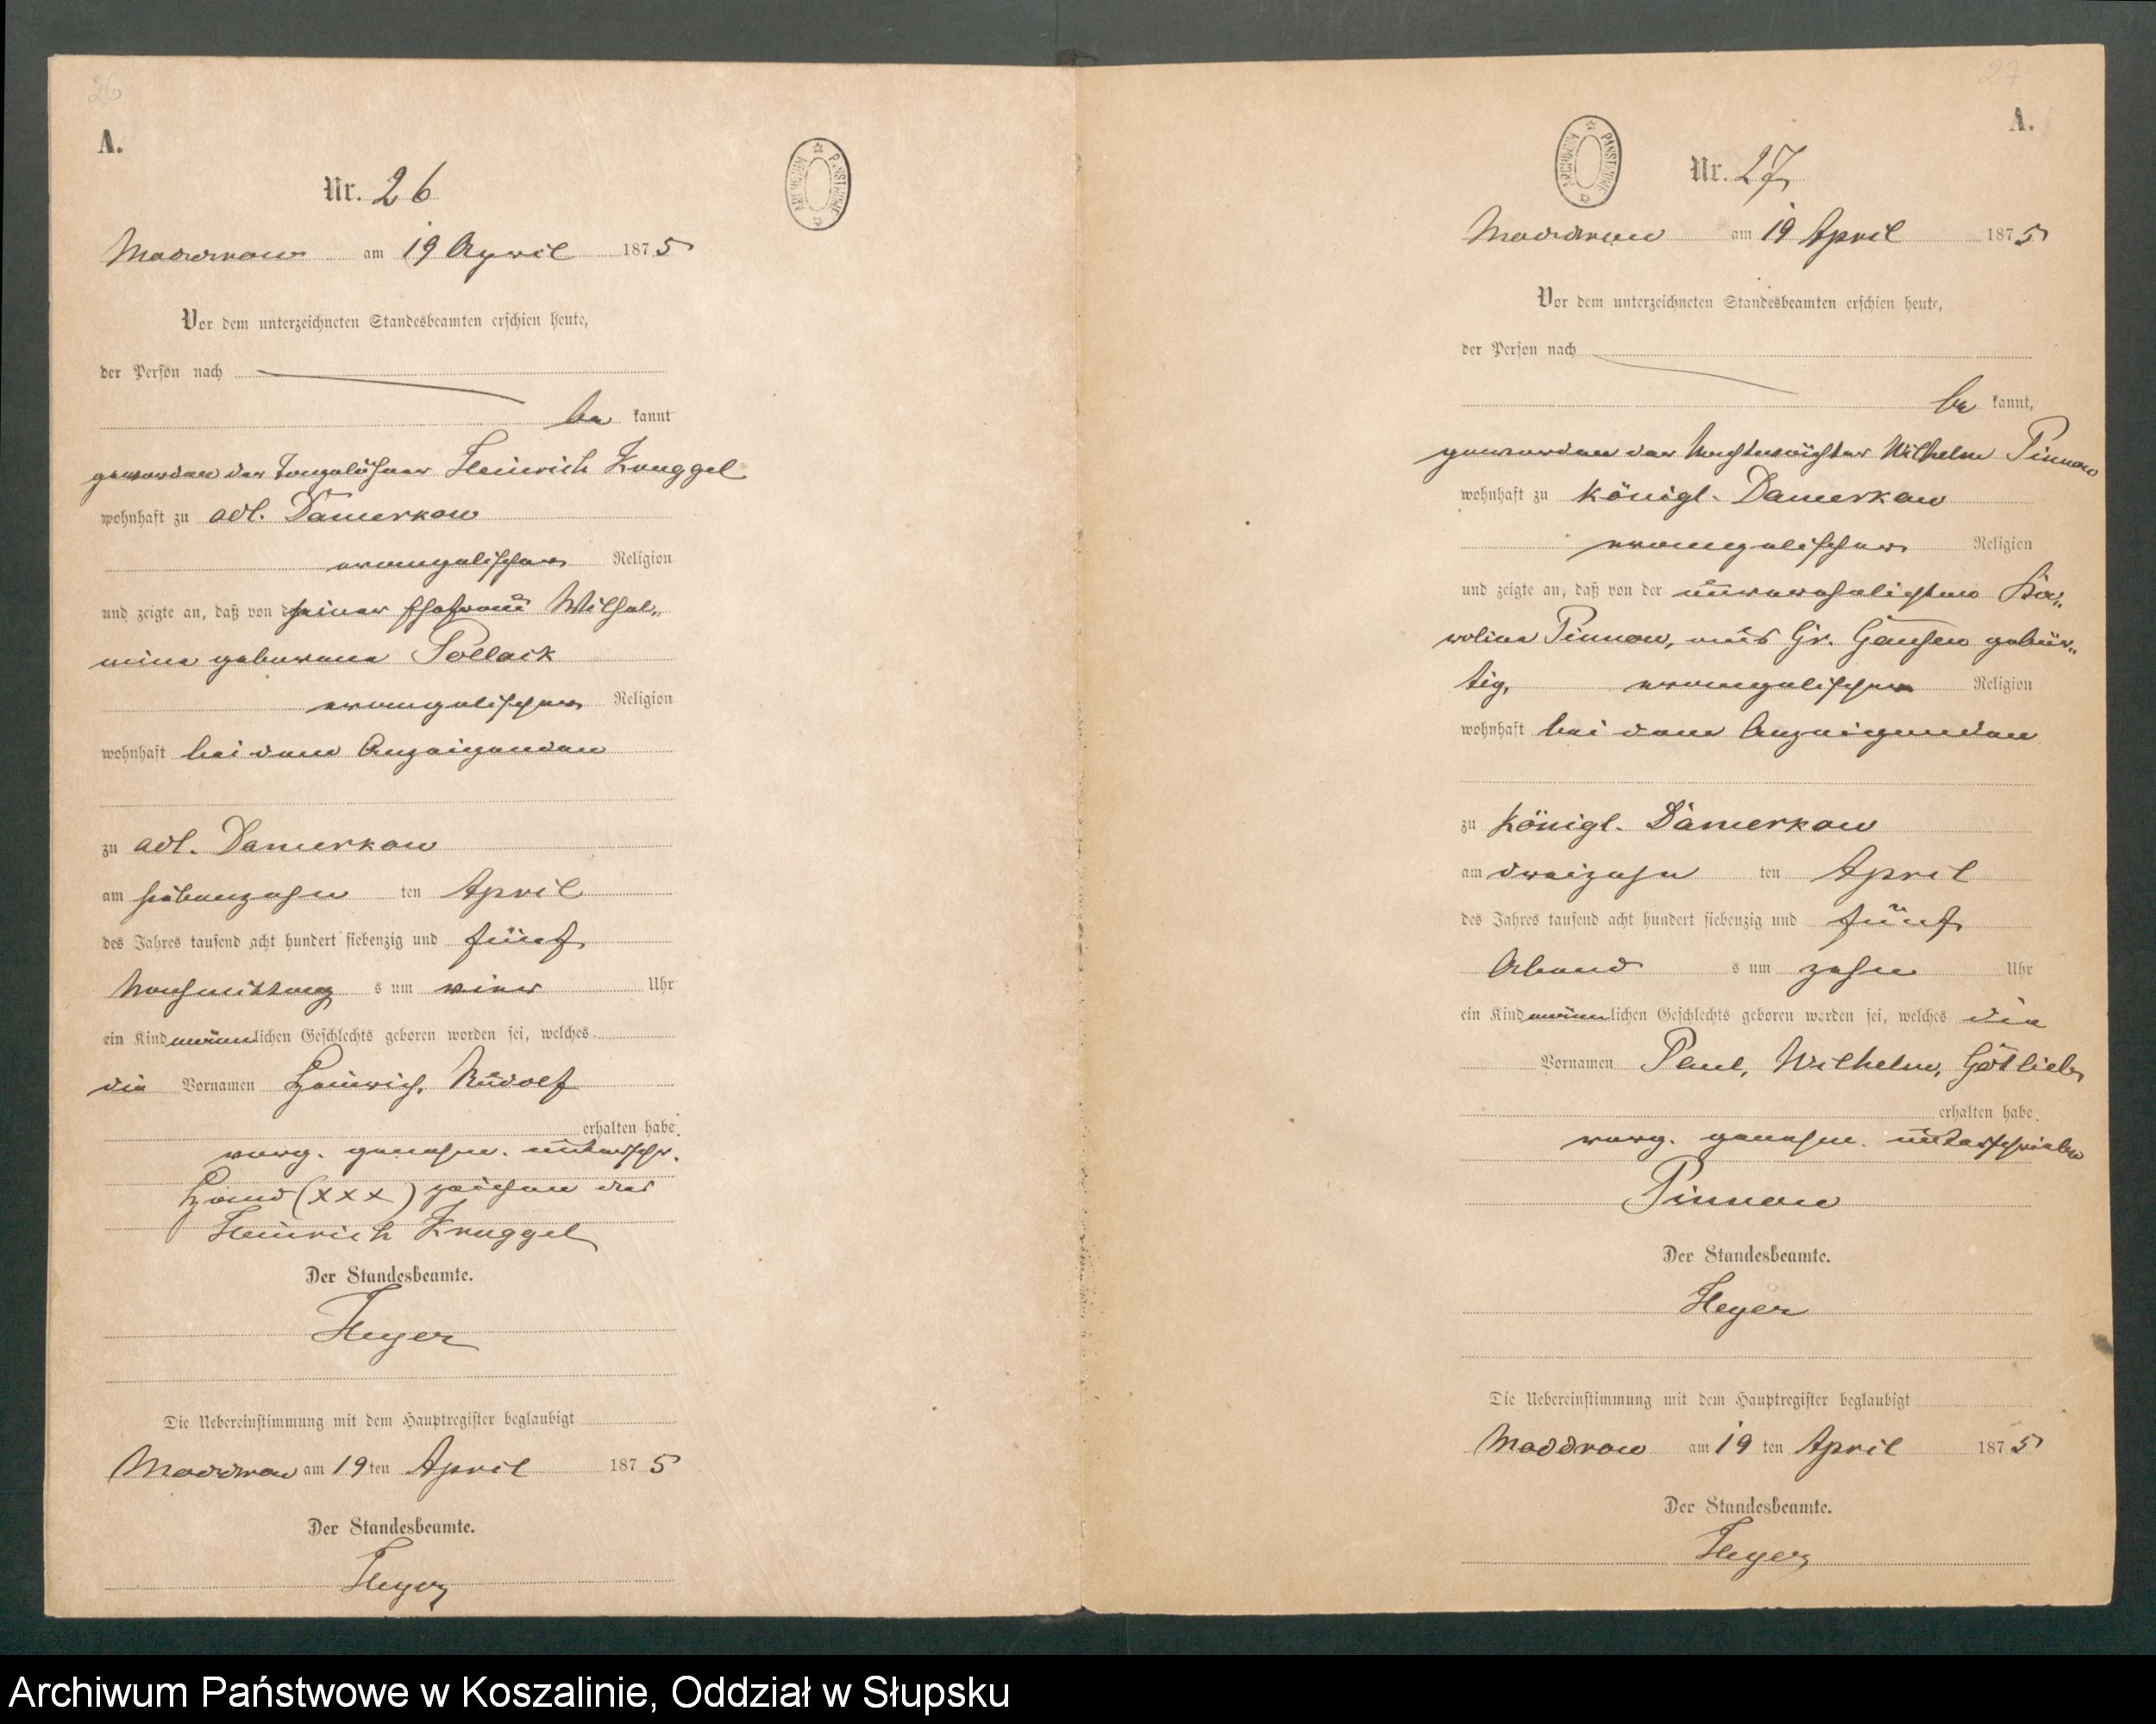 26
A.
ARCHIWUM PAŃSTWOWE
Nr. 26
Maddrow am 19 April 1875
Vor dem unterzeichneten Standesbeamten erschien heute,
der Person nach
be kannt
geworden der Tagelöhner Heinrich Kruggel
wohnhaft zu adl. Damerkow
evangelischer Religion
und zeigte an, daß von der seiner Ehefrau Wilhel„
mine geborene Pollack
evangelischer Religion
wohnhaft bei dem Anzeigenden
zu adl. Damerkow
am siebenzehn ten April
des Jahres tausend acht hundert siebenzig und fünf
Nachmittag s um vier Uhr
ein Kind männlichen Geschlechts geboren worden sei, welches
die Vornamen Heinrich, Rudolf
erhalten habe.
vorg. genehm. unterschr.
Hand (xxx) zeichen des
Heinrich Kruggel
Der Standesbeamte.
Heyer
Die Uebereinstimmung mit dem Hauptregister beglaubigt
Maddrow am 19 ten April 1875
Der Standesbeamte.
Heyer
27
A.
ARCHIWUM PAŃSTWOWE
Nr. 27
Maddrow am 19 April 1875
Vor dem unterzeichneten Standesbeamten erschien heute,
der Person nach
be kannt,
geworden der Nachtwächter Wilhelm Pinnow
wohnhaft zu Königl. Damerkow
evangelischer Religion
und zeigte an, daß von der unverehelichten Ka„
roline Pinnow, aus Gr. Gansen gebür„
tig, evangelischer Religion
wohnhaft bei dem Anzeigenden
zu Königl. Damerkow
am dreizehn ten April
des Jahres tausend acht hundert siebenzig und fünf
Abend s um zehn Uhr
ein Kind männlichen Geschlechts geboren worden sei, welches die
Vornamen Paul, Wilhelm, Gotlieb
erhalten habe.
vorg. genehm. unterschrieben
Pinnow
Der Standesbeamte.
Heyer
Die Uebereinstimmung mit dem Hauptregister beglaubigt
Maddrow am 19 ten April 1875
Der Standesbeamte.
Heyer
Archiwum Państwowe w Koszalinie, Oddział w Słupsku